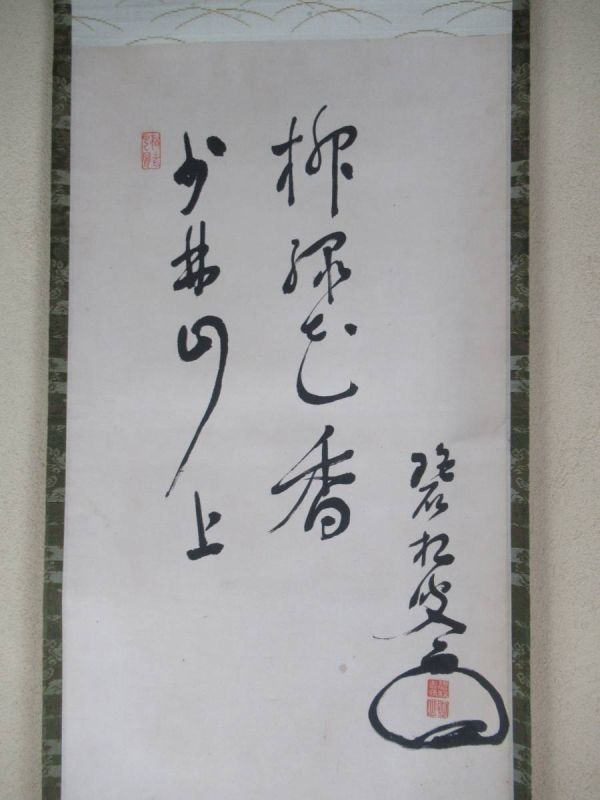 少林山上
柳緑花香
碧松叟